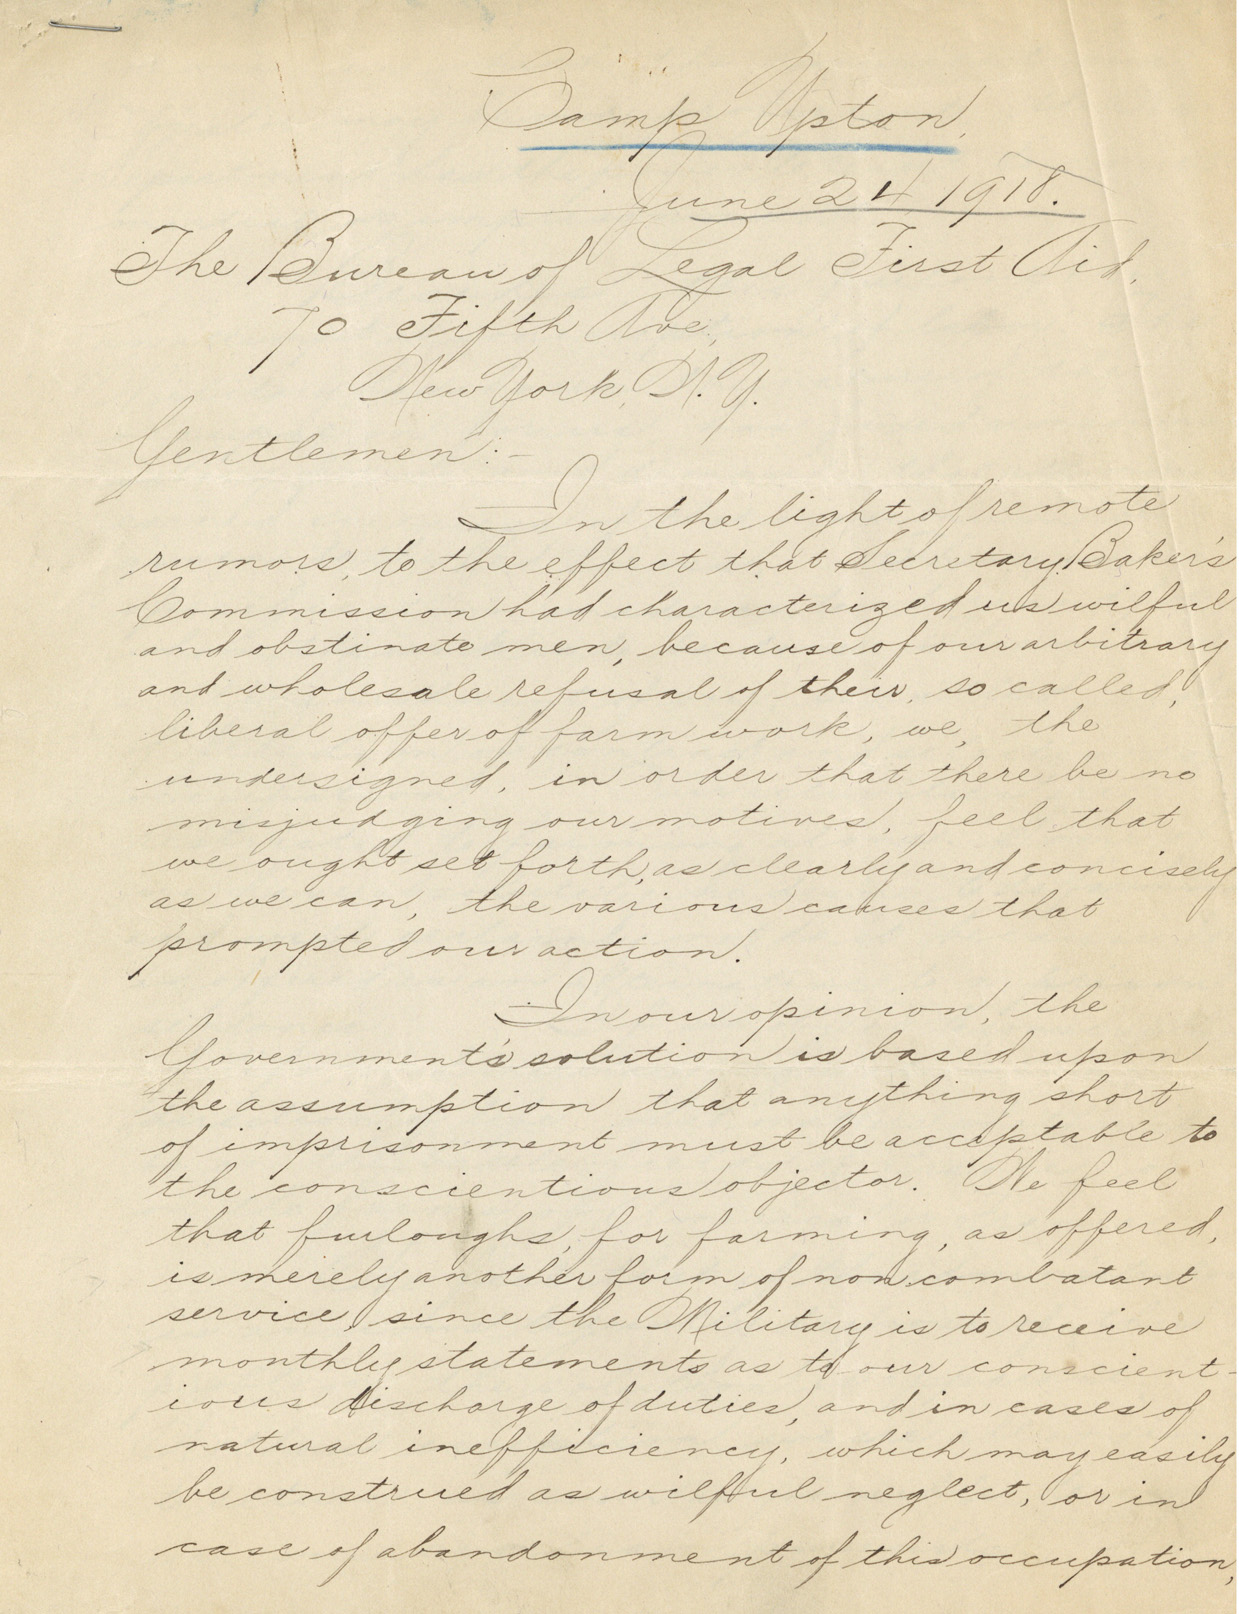 Camp Upton.
June 24, 1918.
The Bureau of Legal First Aid,
70 Fifth Ave.,
New York, N.Y.
Gentlemen:-
In the light of remote
rumors, to the effect that Secretary Baker's
Commission had characterized us wilful
and obstinate men, because of our arbitrary
and wholesale refusal of their, so called,
liberal offer of farm work, we, the
undersigned, in order that there be no
misjudging our motives, feel that
we ought set forth, as clearly and concisely
as we can, the various causes that
prompted our action.
In our opinion, the
Government's solution is based upon
the assumption that anything short
of imprisonment must be acceptable to
the conscientious objector. We feel
that furloughs, for farming, as offered,
is merely another form of non combatant
service, since the Military is to receive
monthly statements as to our conscient-
ious discharge of duties, and in cases of
natural inefficiency, which may easily
be construed as wilful neglect, or in
case of abandonment of this occupation,